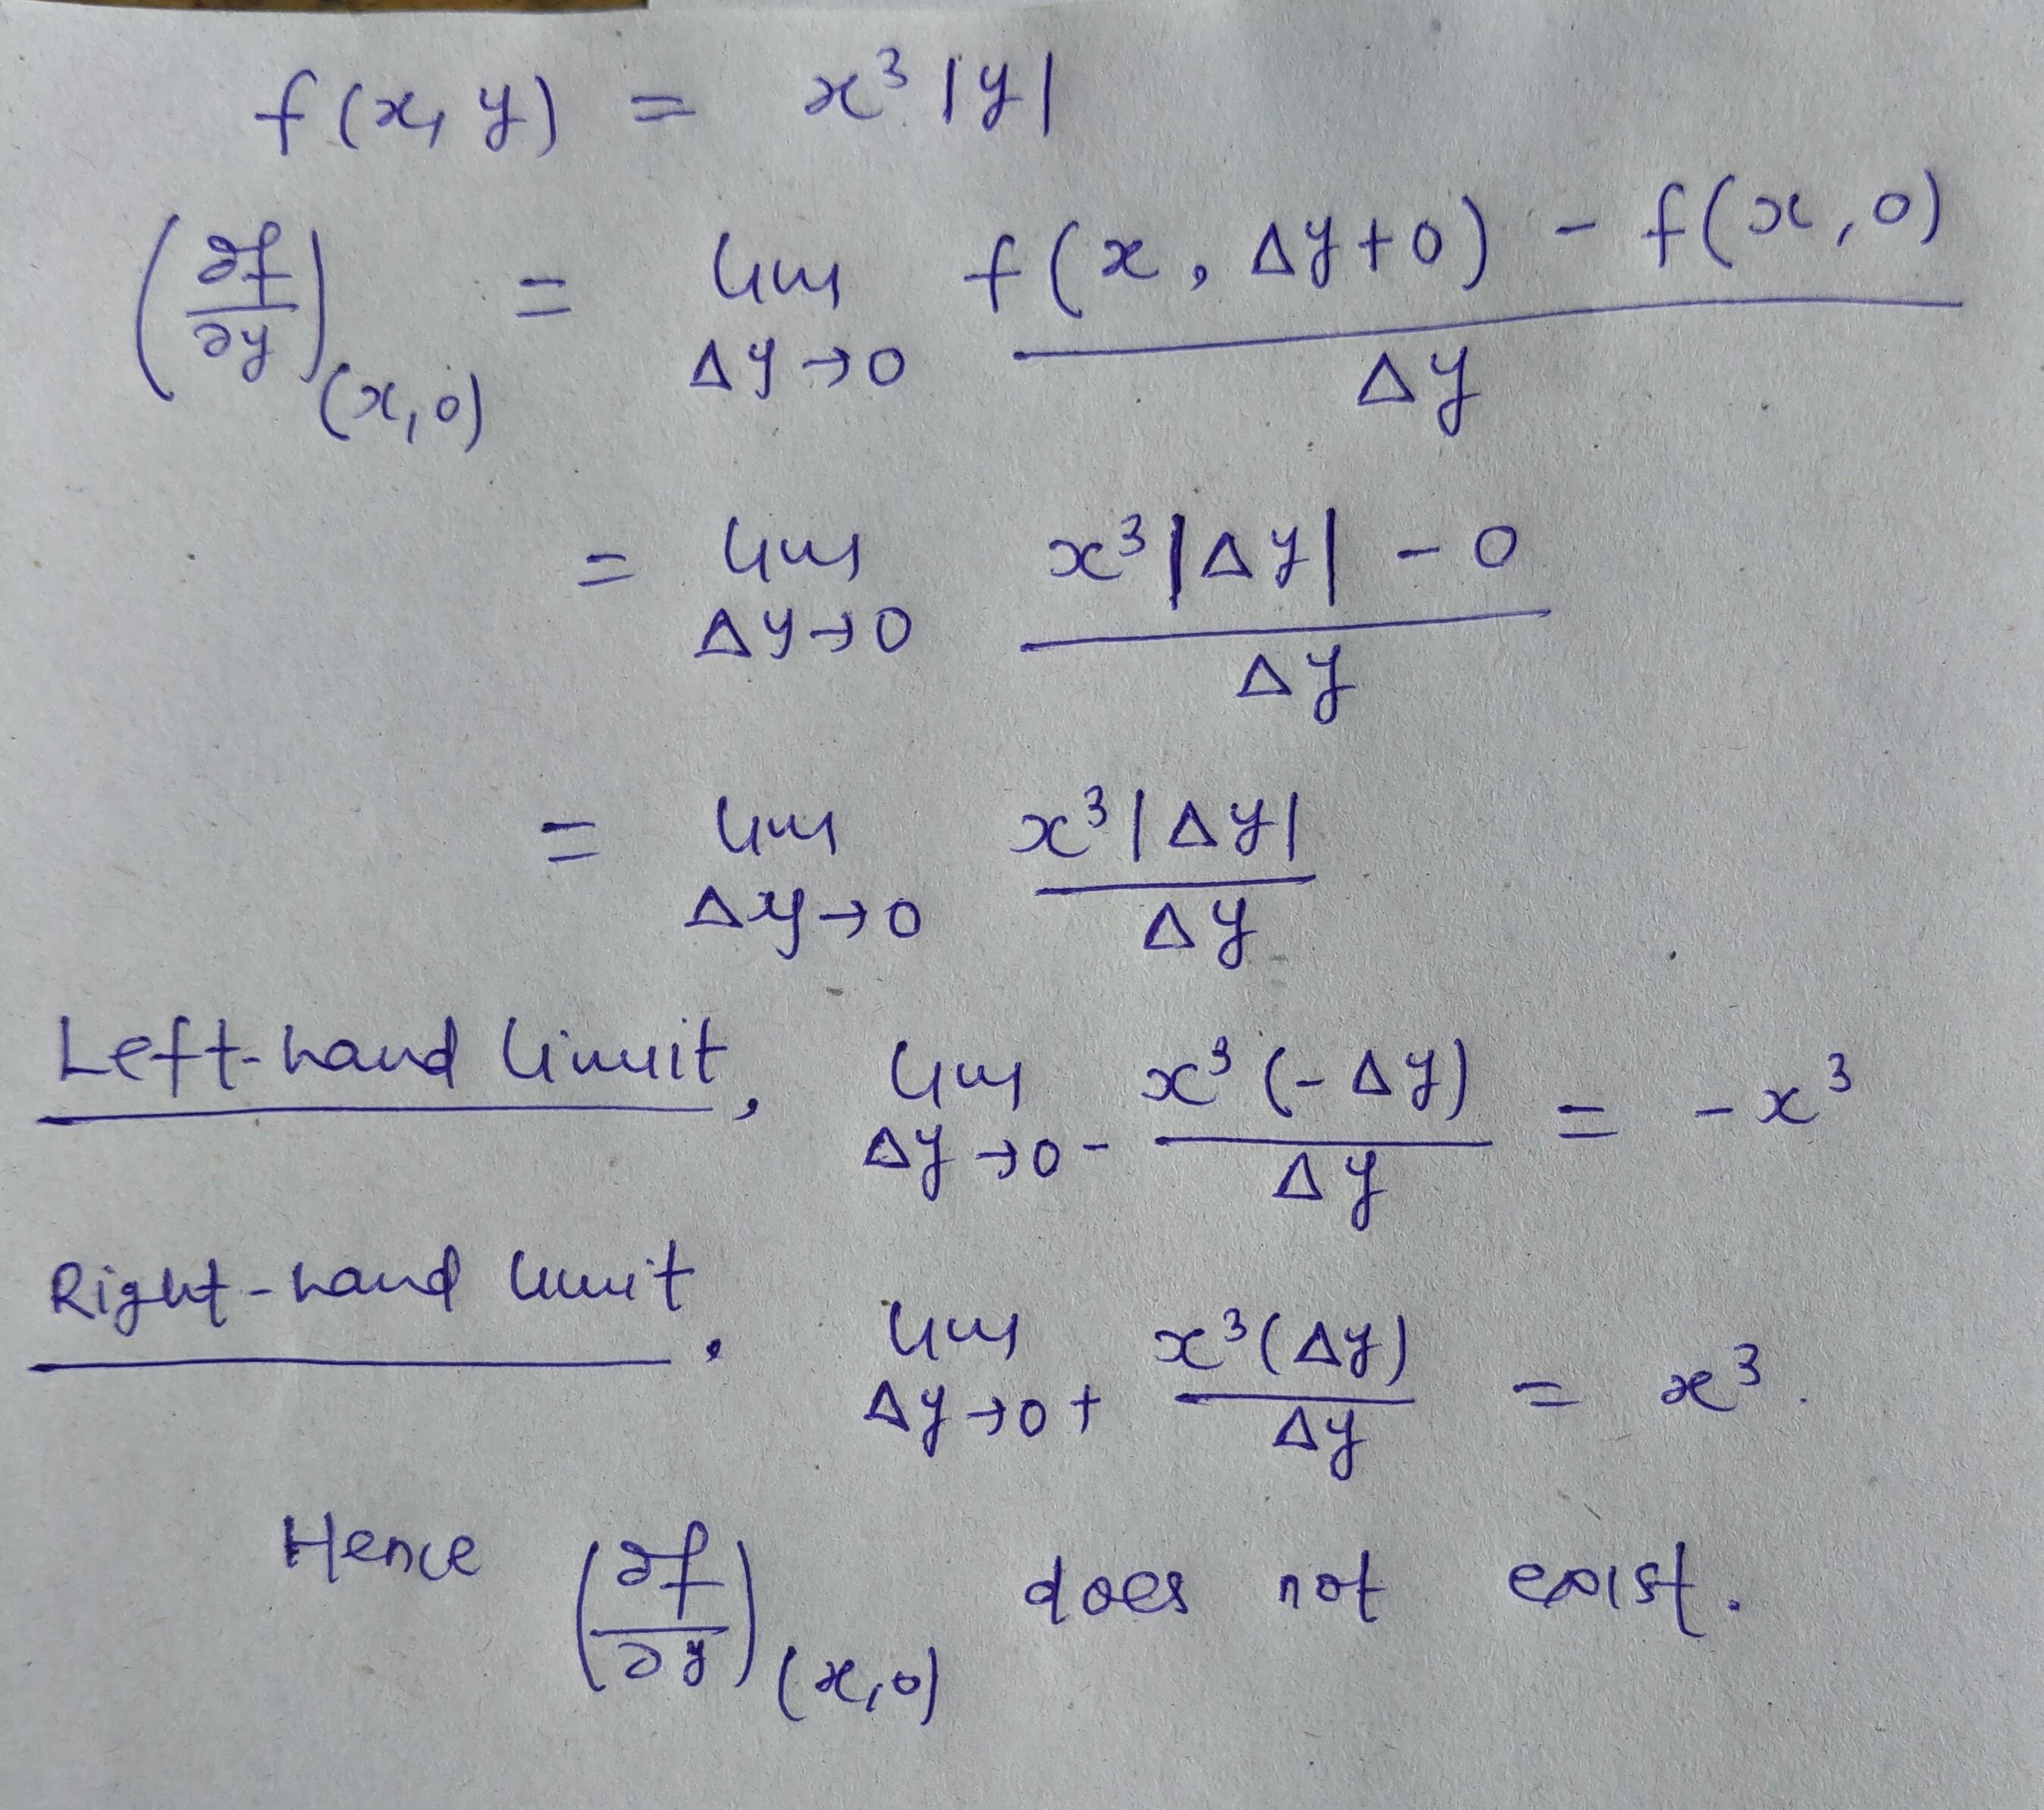 f(x, y) = x³ |y|
(∂f/∂y)(x,0) = lim Δy→0 f(x, Δy+0) - f(x,0) / Δy
= lim Δy→0 x³|Δy| - 0 / Δy
= lim Δy→0 x³|Δy| / Δy
Left-hand limit, lim Δy→0- x³(-Δy) / Δy = -x³
Right-hand limit, lim Δy→0+ x³(Δy) / Δy = x³.
Hence (∂f/∂y)(x,0) does not exist.